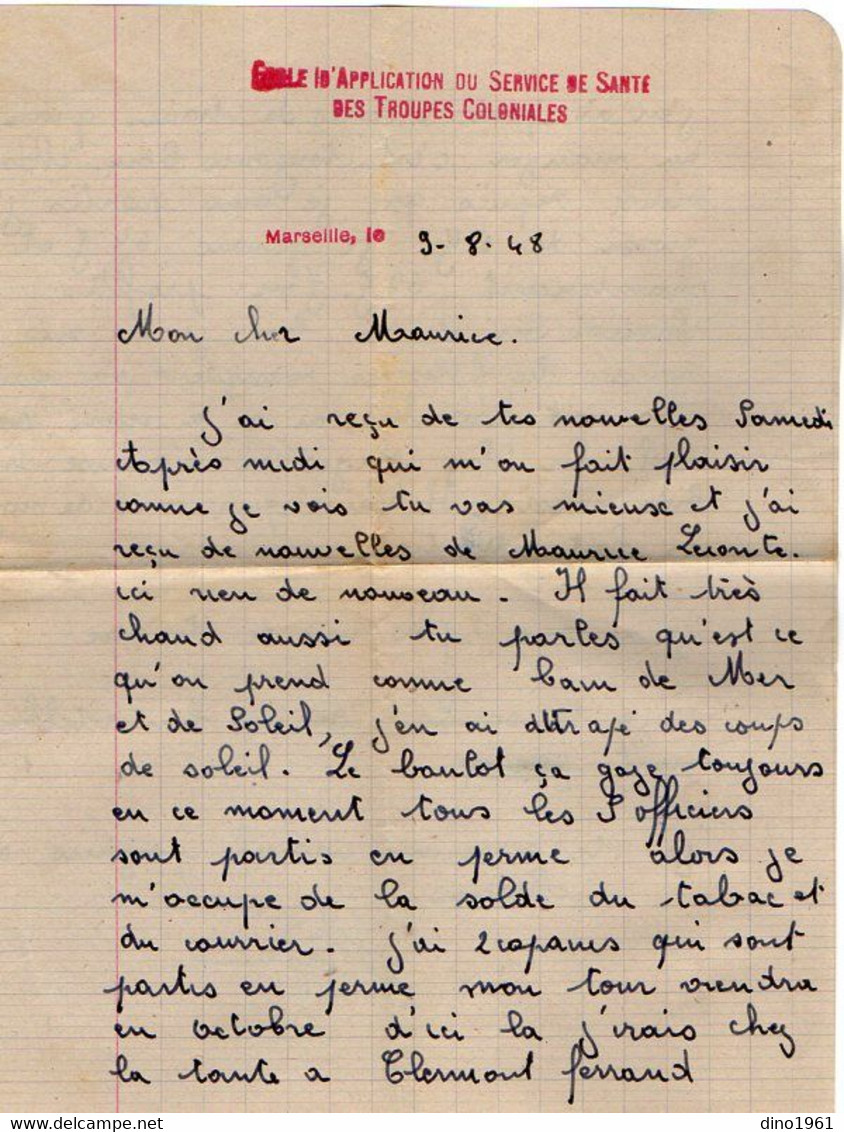 ECOLE D'APPLICATION DU SERVICE DE SANTE
DES TROUPES COLONIALES
Marseille, le 9-8-48
Mon cher Maurice.
J'ai reçu de tes nouvelles Samedi
Après midi qui m'on fait plaisir
comme je vois tu vas mieuse et j'ai
reçu de nouvelles de Maurice Leconte.
ici rien de nouveau. Il fait très
chaud aussi tu parles qu'est ce
qu'on prend comme bain de Mer
et de Soleil, j'en ai attrapé des coups
de soleil. Le boulot ça gaze toujours
en ce moment tous les S officiers
sont partis en perme alors je
m'occupe de la solde du tabac et
du courrier. J'ai 2 copains qui sont
partis en perme mon tour viendra
en octobre d'ici la j'irais chez
la tante a Clermont ferrand
dino1961